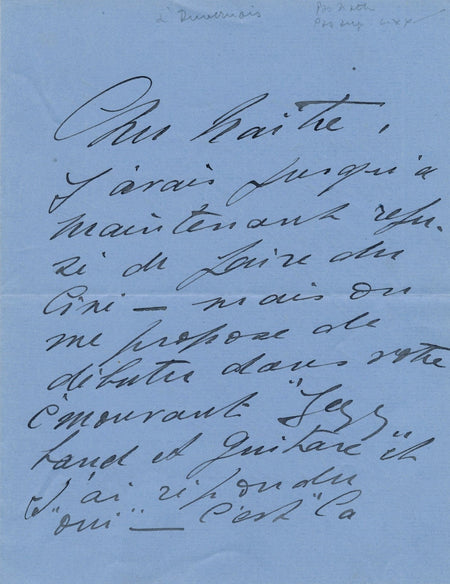 d'Duvernois
Cher Maître,
J'avais jusqu'à
maintenant refu-
sé de faire du
Ciné — mais on
me propose de
débuter dans votre
émouvant "Jazz
band et Guitare" et
J'ai répondu
"oui" — C'est "la